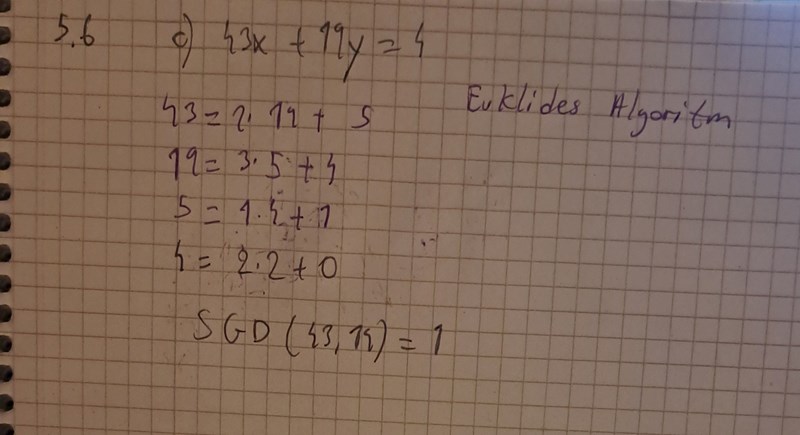 5.6 c) 43x + 19y = 4
Euklides Algoritm
43 = 2 · 19 + 5
19 = 3 · 5 + 4
5 = 1 · 4 + 1
4 = 2 · 2 + 0
SGD (43, 19) = 1